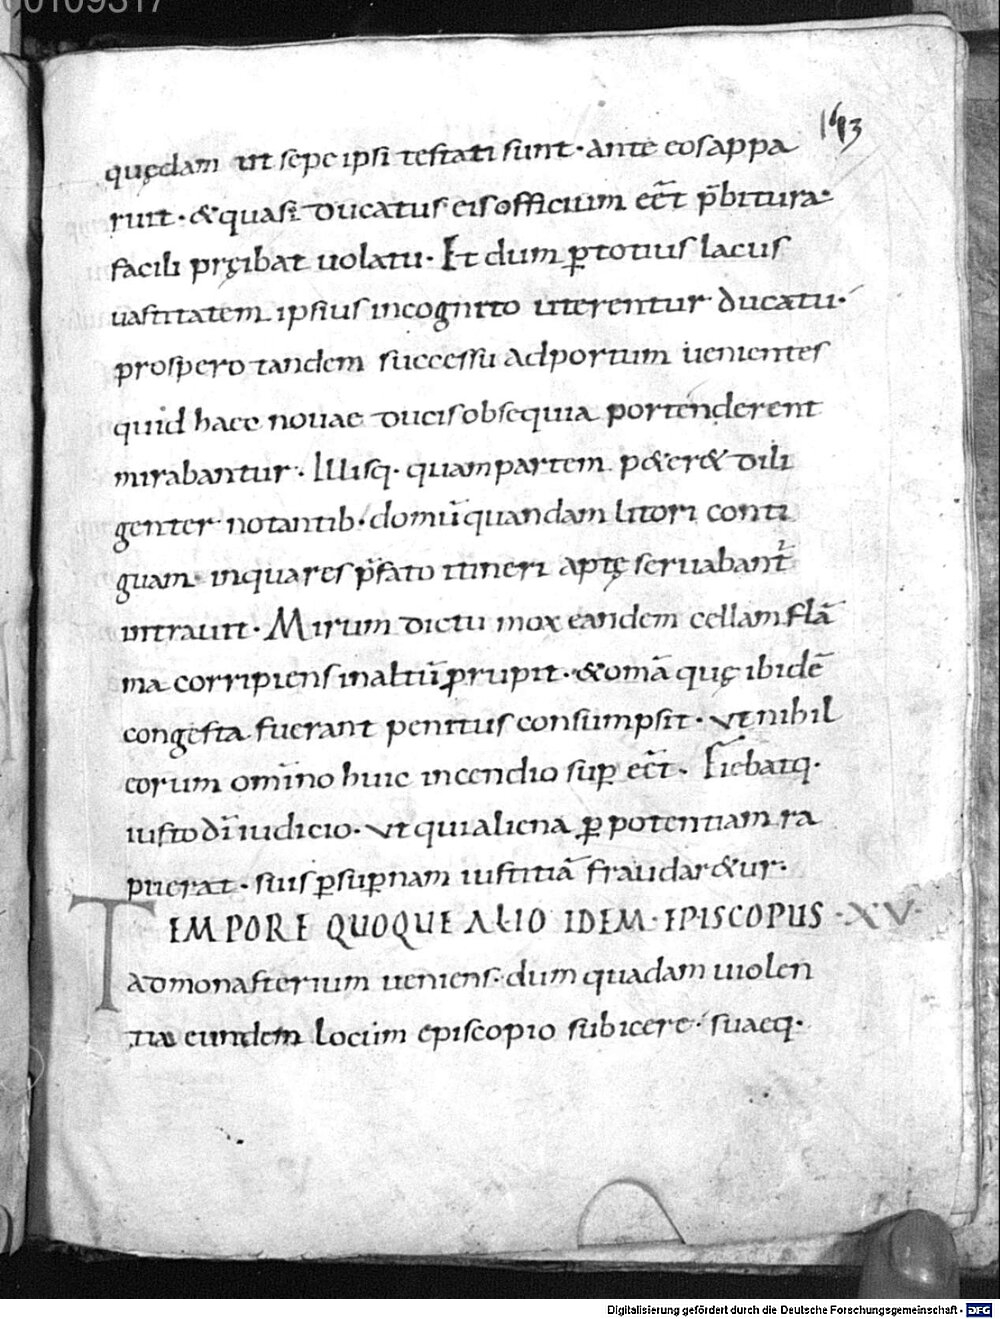 00109317
193
quędam ut sepe ipsi testati sunt · ante eos appa
ruit · & quasi ducatus eis officium eēt p̄bitura ·
facili pręibat uolatu · Et dum p̱ totius lacus
uastitatem ipsius incognito uterentur ducatu ·
prospero tandem successu ad portum uenientes
quid haec nouae ducis obsequia portenderent
mirabantur · Illisq· quam partem p&er& dili
genter notantib· domū quandam litori conti
guam in qua res p̄fato itineri aptę seruabant̄
intrauit · Mirum dictu mox eandem cellam flā
ma corripiens in altū p̱rupit · & om̄a quę ibidē
congesta fuerant penitus consumpsit · ut nihil
eorum om̄ino huic incendio sup̱ eēt · Fiebatq·
iusto dī iudicio · ut qui aliena p̱ potentiam ra
puerat · suis p̱ sup̱nam iustitiā fraudar&ur ·
TEMPORE QUOQUE ALIO IDEM · EPISCOPUS · XV ·
ad monasterium ueniens · dum quadam uiolen
tia eundem locum episcopio subicere · suaeq·
Digitalisierung gefördert durch die Deutsche Forschungsgemeinschaft - DFG